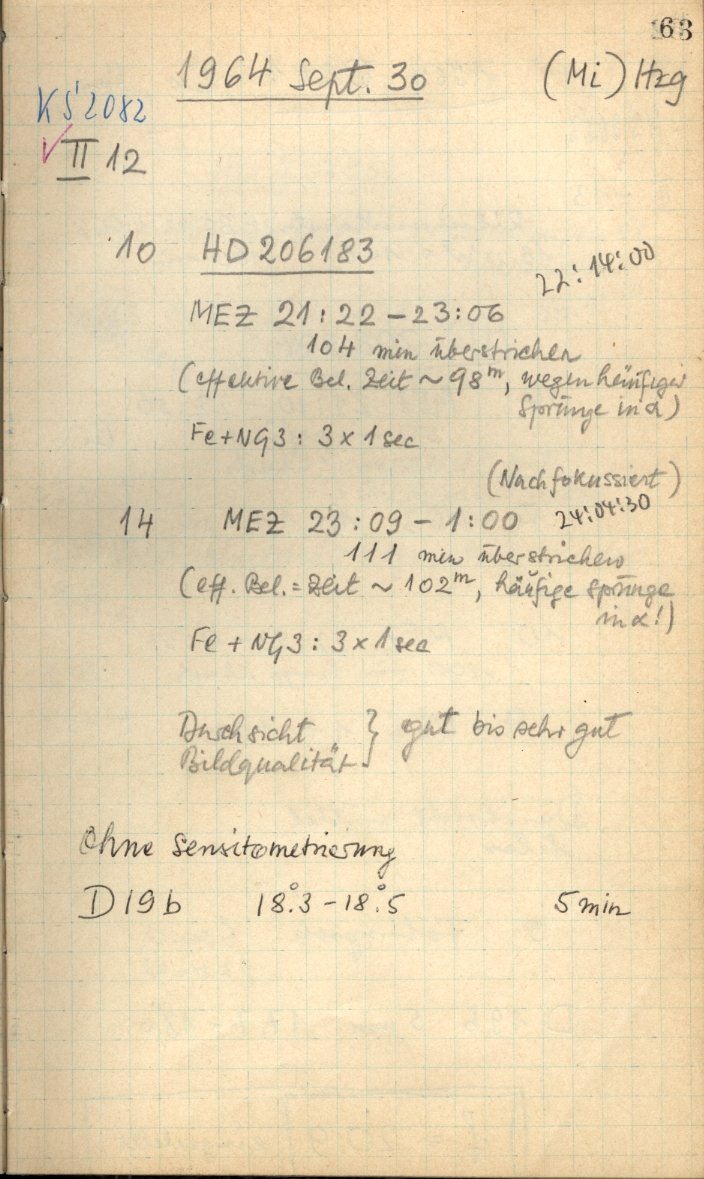 63
1964 Sept. 30 (Mi) Hzg
KS 2082
II 12
10 HD 206183
22:14:00
MEZ 21:22 – 23:06
104 min überstrichen
(effektive Bel. Zeit ~ 98ᵐ, wegen häufiger
Sprünge in α)
Fe+NG3: 3 x 1 sec
(Nachfokussiert)
14 MEZ 23:09 – 1:00 24:04:30
111 min überstrichen
(eff. Bel.=Zeit ~ 102ᵐ, häufige Sprünge
in α!)
Fe + NG3: 3 x 1 sec
Durchsicht } gut bis sehr gut
Bildqualität
Ohne Sensitometrierung
D19b 18°.3 – 18°.5 5 min